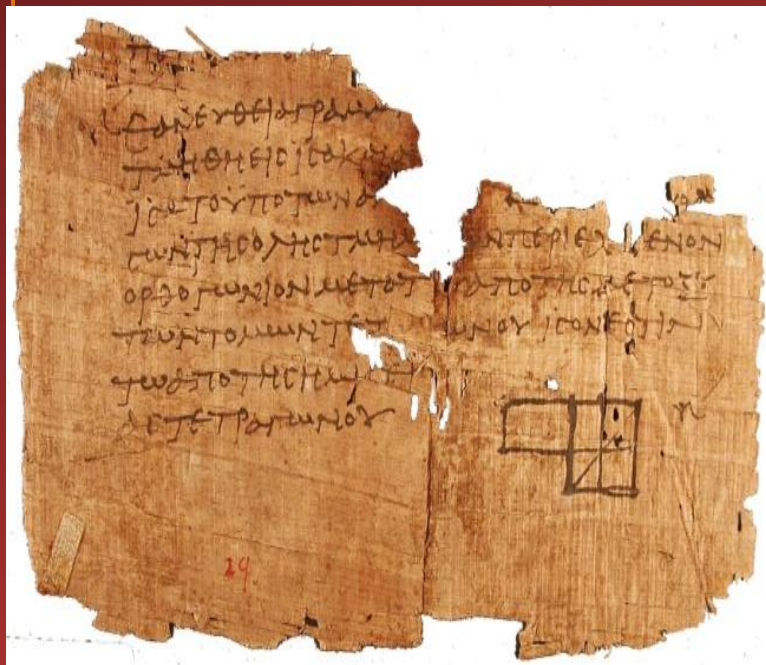 ΕΑΝΕΥΘΕΙΑΓΡΑΜΜ
ΤΜΗΘΗΕΙϹΙϹΑΚΑΙΑ
ΙϹΑΤΟΥΠΟΤΩΝΑ
ϹΩΝΤΗϹΟΛΗϹΤΜΗΜ ΝΠΕΡΙΕΧ ΜΕΝΟΝ
ΟΡΘΟΓΩΝΙΟΝΜΕΤΟΤ ΑΠΟΤΗϹΜΕΤΟΞΥ
ΤΩΝΤΟΜΩΝΤΕΤ ΩΝΟΥΙϹΟΝΕϹΤΙΝ
ΤΩΑΠΟΤΗϹΗΜΙ
ΑϹΤΕΤΡΑΓΩΝΟΥ
29